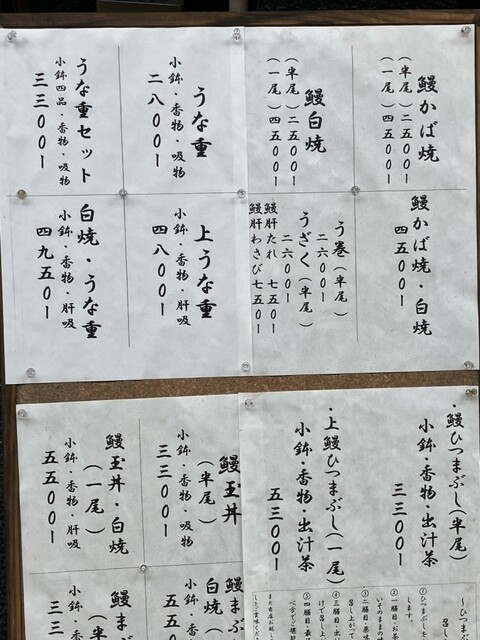 鰻かば焼
（半尾）二五〇〇ー
（一尾）四五〇〇ー
鰻白焼
（半尾）二五〇〇ー
（一尾）四五〇〇ー
鰻かば焼・白焼
四五〇〇ー
う巻（半尾）
二六〇〇ー
うざく（半尾）
二六〇〇ー
鰻肝たれ 七五〇ー
鰻肝わさび七五〇ー
うな重
小鉢・香物・吸物
二八〇〇ー
うな重セット
小鉢四品・香物・吸物
三三〇〇ー
上うな重
小鉢・香物・肝吸
四八〇〇ー
白焼・うな重
小鉢・香物・肝吸
四九五〇ー
・鰻ひつまぶし（半尾）
小鉢・香物・出汁茶
三三〇〇ー
・上鰻ひつまぶし（一尾）
小鉢・香物・出汁茶
五三〇〇ー
〜ひつまぶし
①ひつまぶし
します。
②一膳目：お
いそのまま
③二膳目：薬
召し上がって
④三膳目：
けて召し上
⑤四膳目：最
鰻玉丼
（半尾）
小鉢・香物・吸物
三三〇〇ー
鰻玉丼・白焼
（一尾）
小鉢・香物・肝吸
五五〇〇ー
鰻まぶ
白焼（
小鉢・香
五五〇
鰻まぶ
小鉢・香
三三